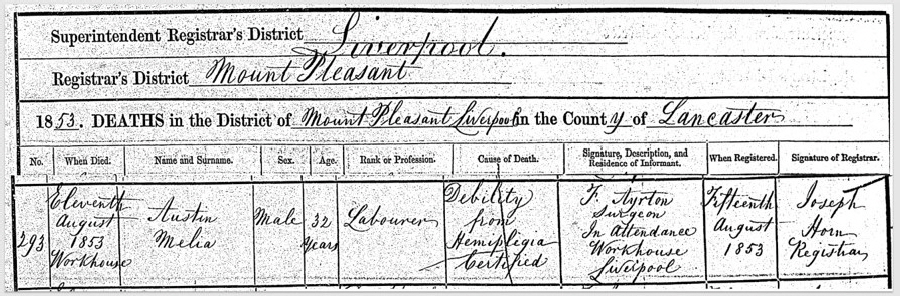 Superintendent Registrar's District Liverpool.
Registrar's District Mount Pleasant
1853. DEATHS in the District of Mount Pleasant Liverpool in the County of Lancaster
No. When Died. Name and Surname. Sex. Age. Rank or Profession. Cause of Death. Signature, Description, and Residence of Informant. When Registered. Signature of Registrar.
293
Eleventh
August
1853
Workhouse
Austin
Melia
Male
32
Years
Labourer
Debility
from
Hemiplegia
Certified
F. Ayrton
Surgeon
In Attendance
Workhouse
Liverpool
Fifteenth
August
1853
Joseph
Horn
Registrar